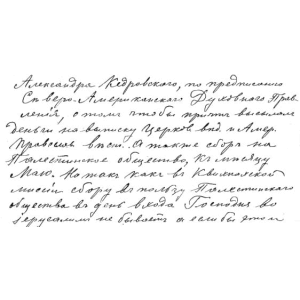 Александра Кедровскаго, по предписанію
Сѣверо-Американскаго Духовнаго Прав-
ленія, о томъ чтобы причтъ высылалъ
деньги на выписку Церков. вѣд. и Амер.
Правосл. Вѣстн. А также сборъ на
Палестинское общество, къ мѣсяцу
Маю. Но такъ какъ въ Квихпахской
миссіи сбору въ пользу Палестинскаго
общества въ день входа Господня во
Іерусалимъ не бываетъ а если бы этот